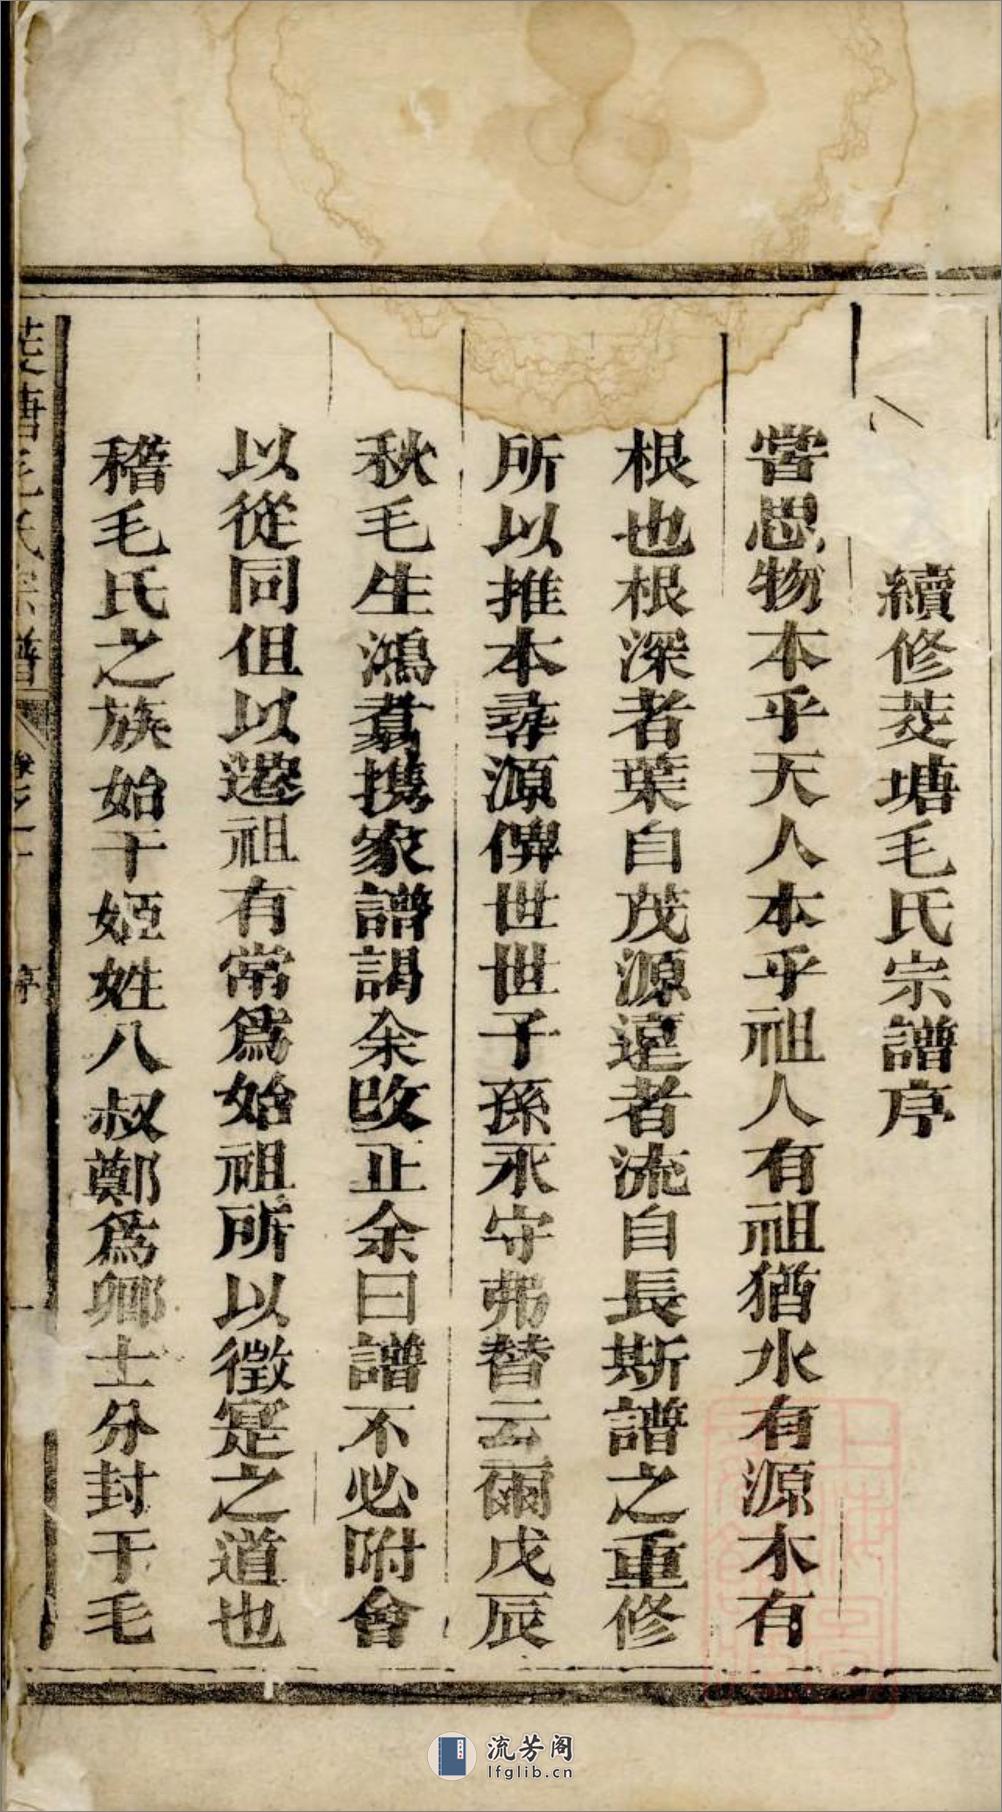 續修茭塘毛氏宗譜序
嘗思物本乎天人本乎祖人有祖猶水有源木有
根也根深者葉自茂源遠者流自長斯譜之重修
所以推本尋源俾世世子孫永守弗替云爾戊辰
秋毛生鴻翥携家譜謁余改正余曰譜不必附會
以從同但以遷祖有常爲始祖所以徵寔之道也
稽毛氏之族始于姬姓八叔鄭爲卿士分封于毛
塘毛氏宗譜
序
一
流芳阁
lfglib.cn